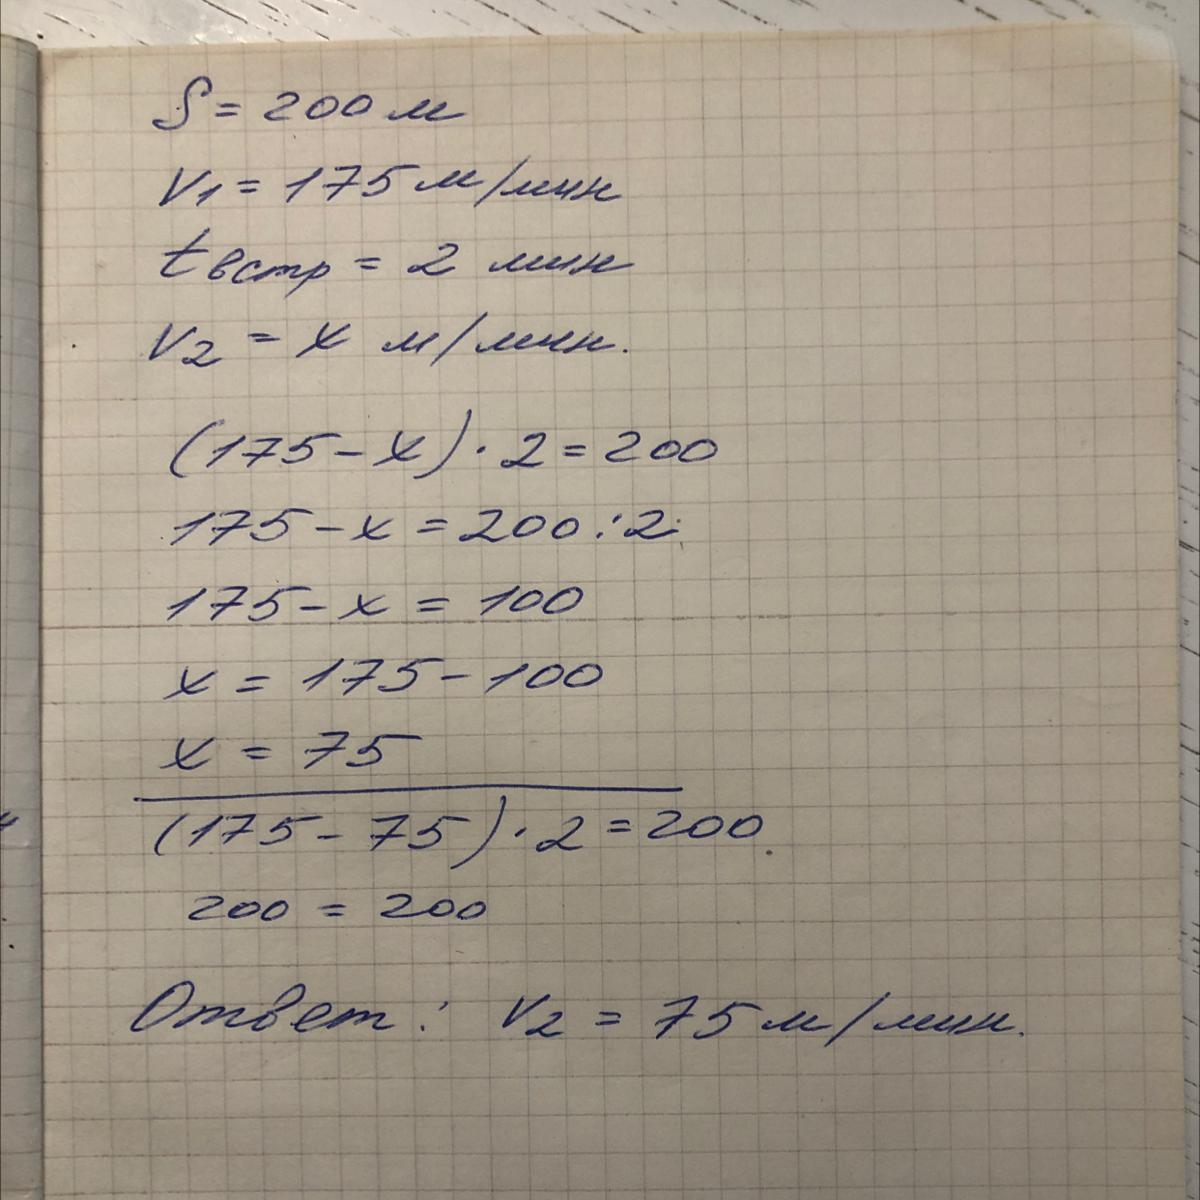 S = 200 м
V1 = 175 м/мин
t встр = 2 мин
V2 = x м/мин.
(175 - x) · 2 = 200
175 - x = 200 : 2
175 - x = 100
x = 175 - 100
x = 75
(175 - 75) · 2 = 200
200 = 200
Ответ: V2 = 75 м/мин.